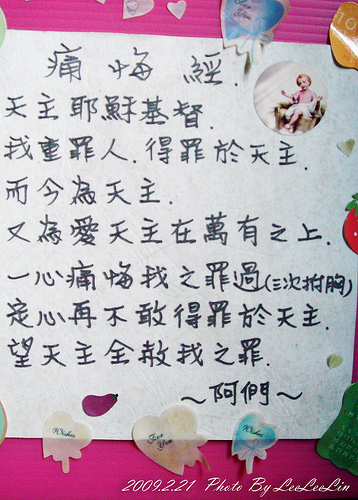 痛悔經.
天主耶穌基督.
我重罪人.得罪於天主.
而今為天主.
又為愛天主在萬有之上.
一心痛悔我之罪過(三次拊胸)
定心再不敢得罪於天主.
望天主全赦我之罪.
~阿們~
Wishes
For You
Wishes
2009.2.21 Photo By LeeLeeLin